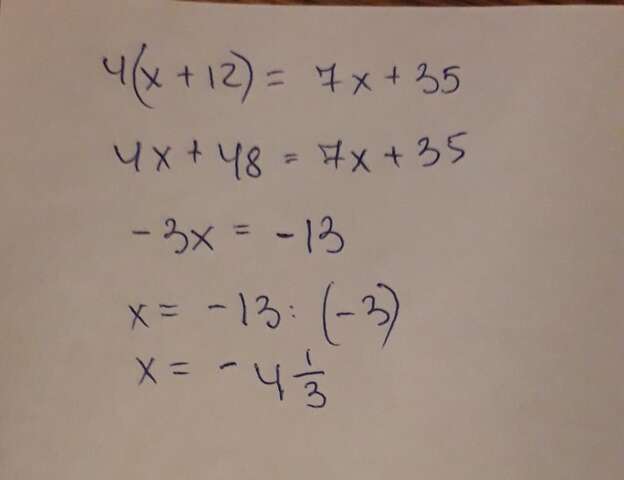 4(x + 12) = 7x + 35
4x + 48 = 7x + 35
- 3x = - 13
x = - 13 : (- 3)
x = - 4 1/3